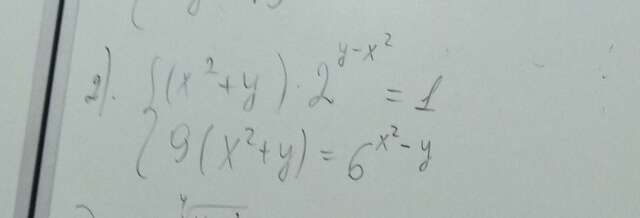 2). { (x² + y) · 2^(y-x²) = 1
{ 9(x² + y) = 6^(x²-y)